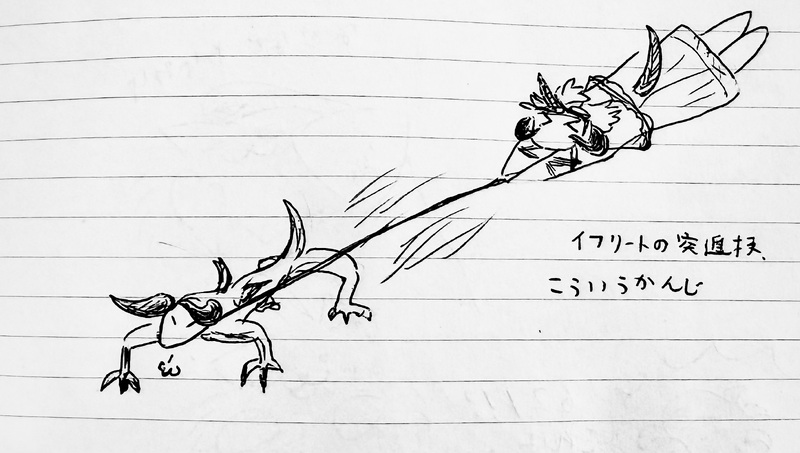 イフリートの突進技、
こういうかんじ